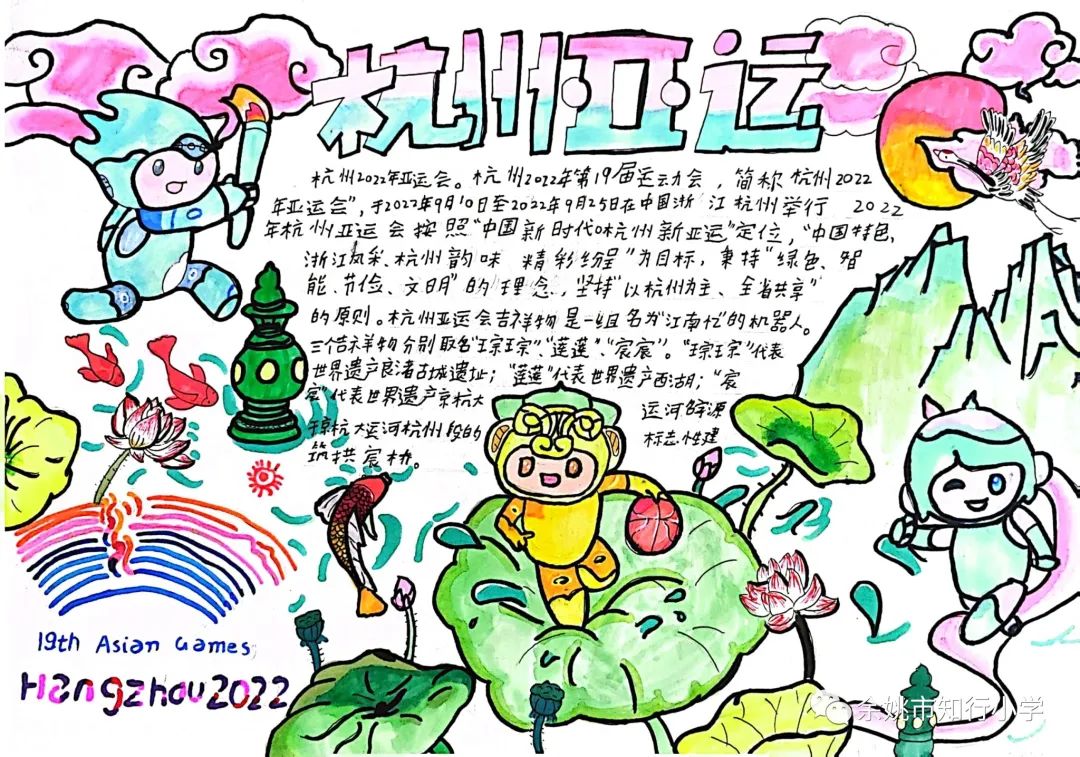 杭州亚运
杭州2022年亚运会。杭州2022年第19届运动会，简称杭州2022
年亚运会”，于2022年9月10日至2022年9月25日在中国浙江杭州举行 2022
年杭州亚运会按照“中国新时代杭州新亚运”定位，“中国特色、
浙江风采、杭州韵味 精彩纷呈”为目标，秉持“绿色、智
能、节俭、文明”的理念，坚持“以杭州为主、全省共享”
的原则。杭州亚运会吉祥物是一组名为“江南忆”的机器人。
三个吉祥物分别取名“琮琮”、“莲莲”、“宸宸”。“琮琮”代表
世界遗产良渚古城遗址；“莲莲”代表世界遗产西湖；“宸
宸”代表世界遗产京杭大运河
京杭大运河杭州段的标志性建
筑拱宸桥。
19th Asian Games
Hangzhou2022
余姚市知行小学